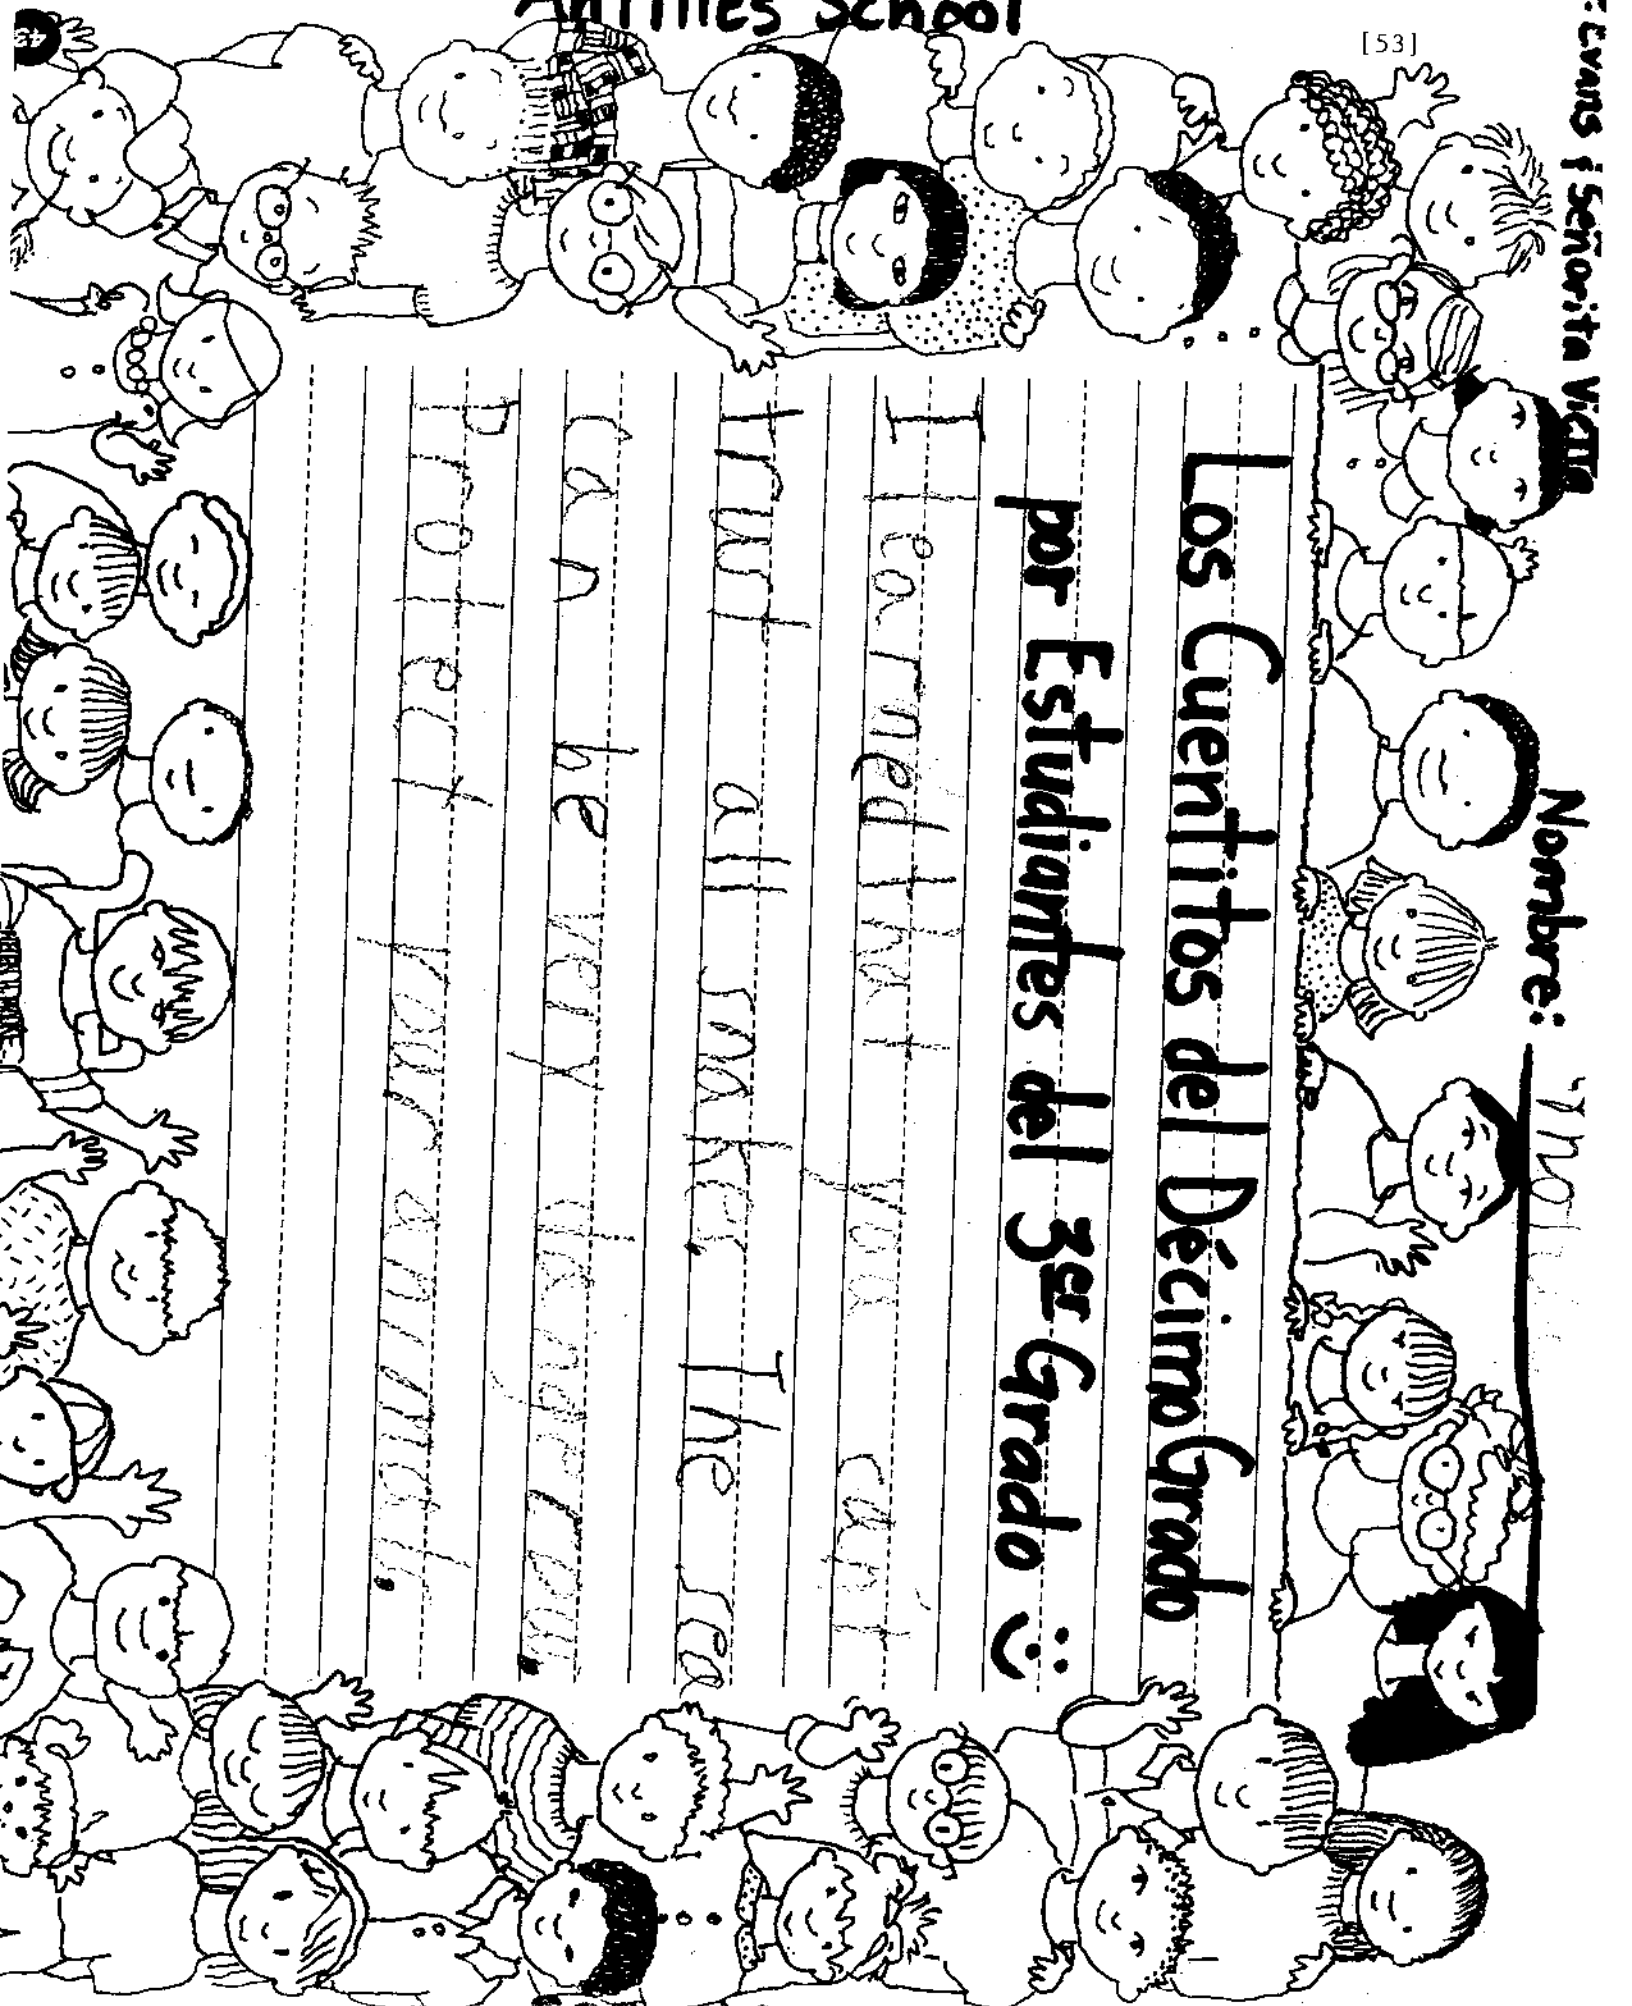 Antilles School
[53]
43
Evans y Señorita
Nombre:
Los Cuentitos del Décimo Grado
por Estudiantes del 3er Grado :)
I learned that you can't
trut all snakes. The sea
can be very dangerous.
Protect your animals.